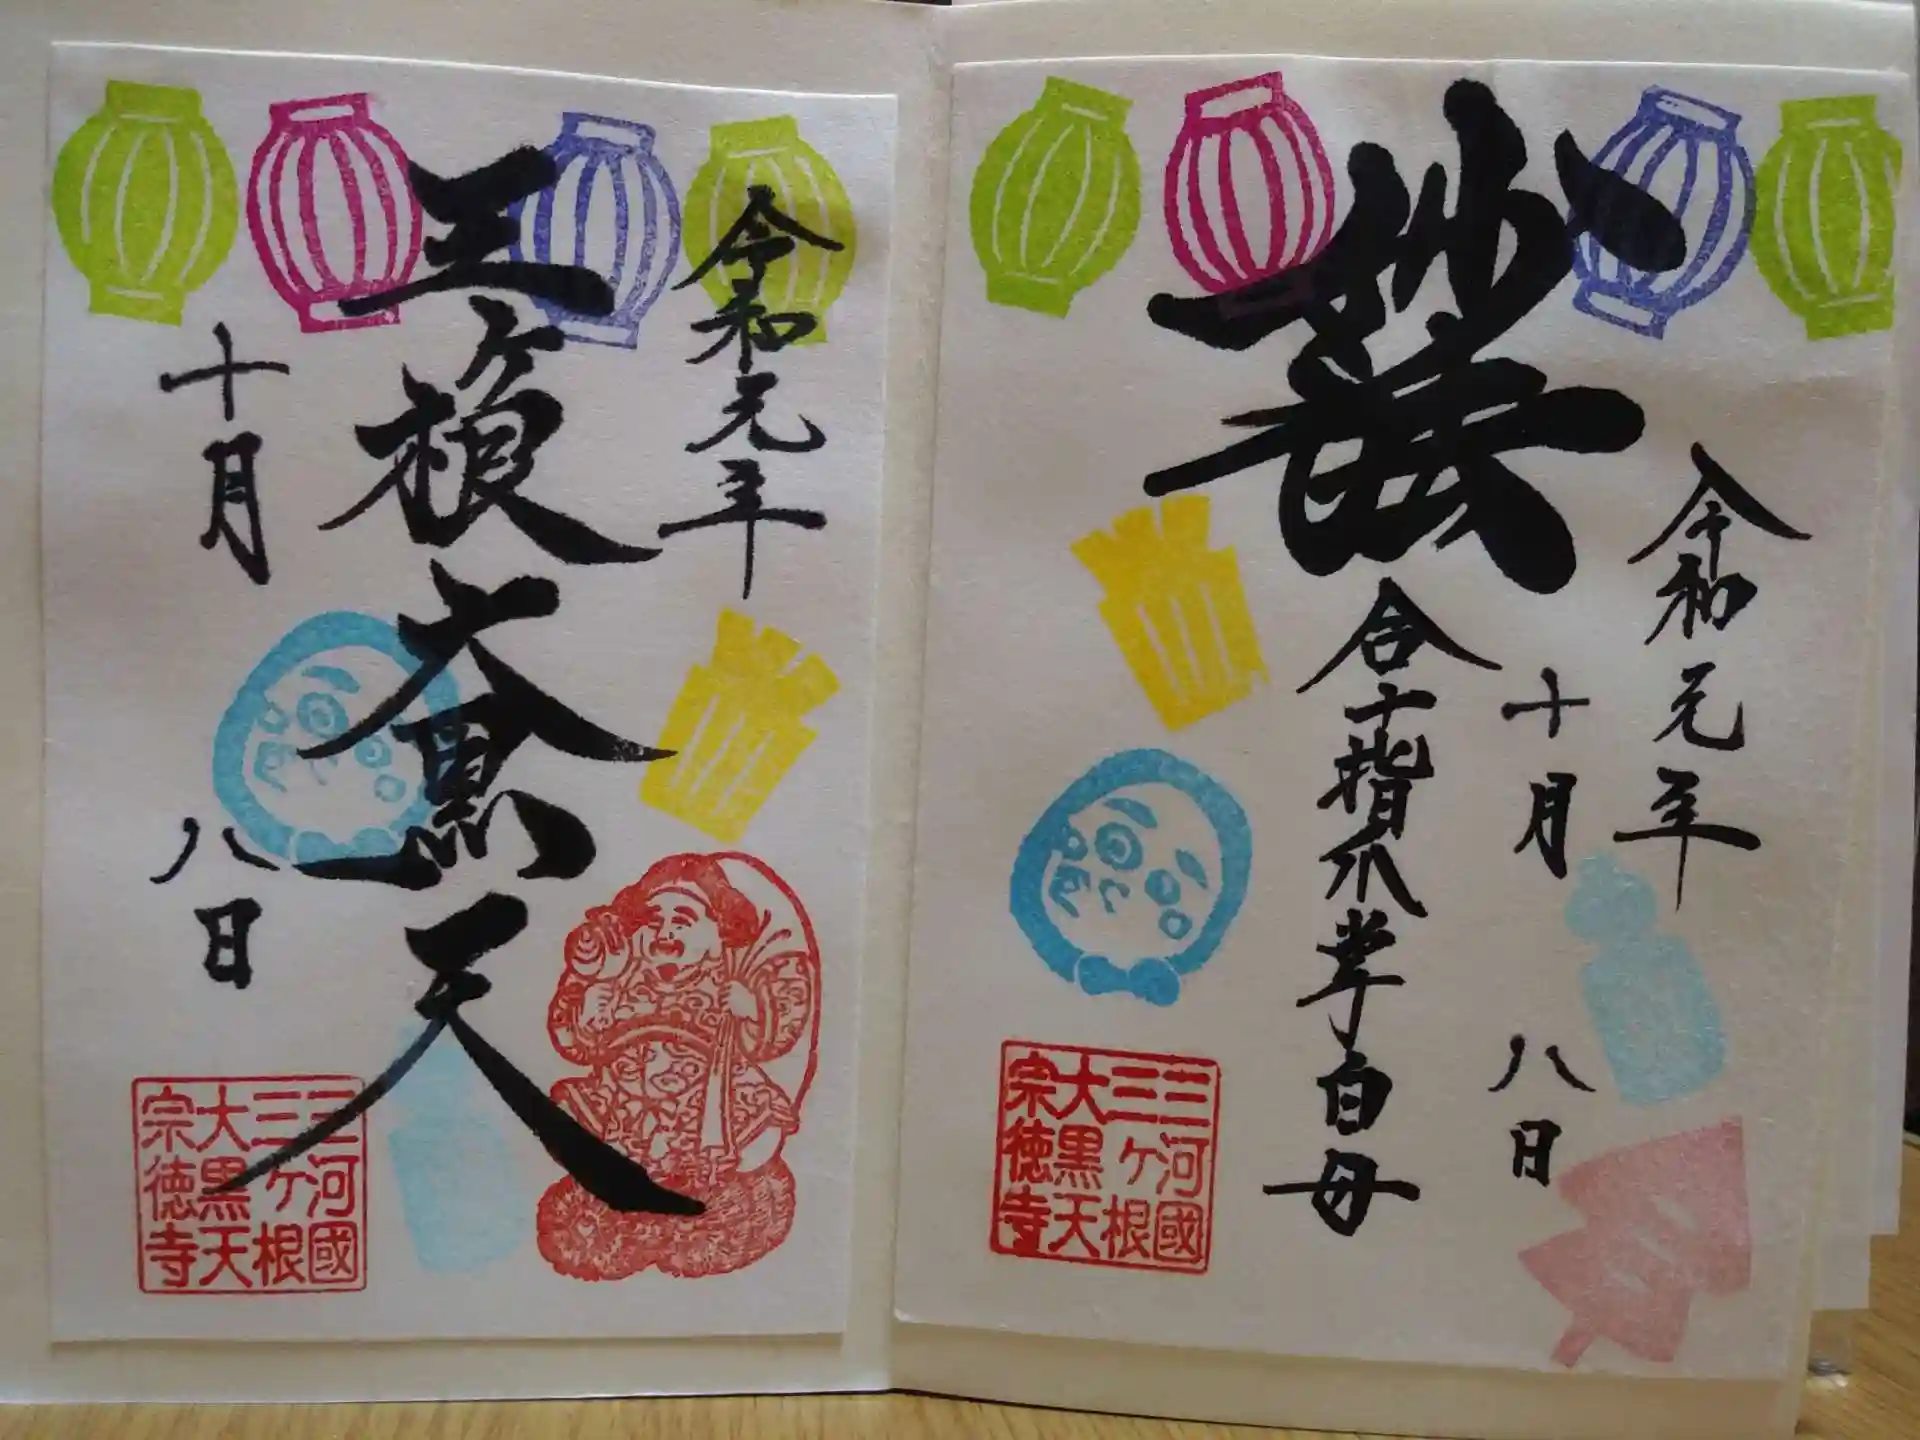 妙法
合十指爪掌白母
令和元年
十月
八日
三河國
三ヶ根
大黒天
宗徳寺
令和元年
三ヶ根大黒天
十月
八日
三河國
三ヶ根
大黒天
宗徳寺